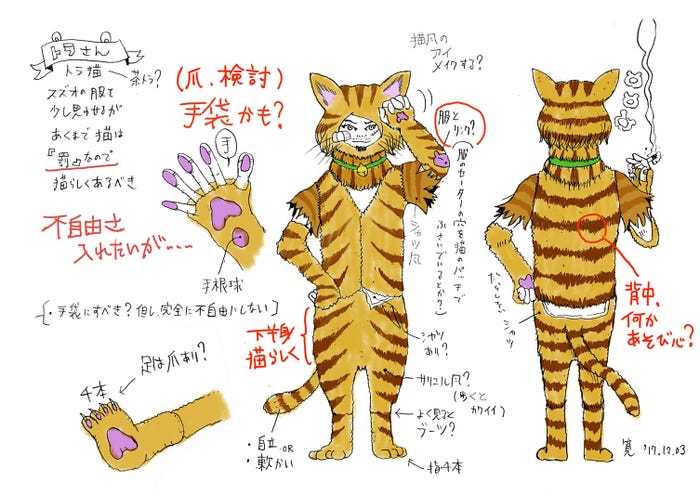 トラさん
トラ猫
茶トラ?
スズオの服を
少し思わせるが
あくまで猫は
『罰』なので
猫らしくあるべき
不自由さ
入れたいが・・・・
(爪、検討)
手袋かも?
手
手根球
{・手袋にすべき?但し、完全に不自由にしない}
足は爪あり?
4本
猫風の
アイ
メイクする?
服と
リンク?
(服のセーターの穴を猫のパッチで
ふさいでいるとか?)
シャツ風
下半身
猫らしく
シャツ
あり?
サリエル風?
(歩くと
カワイイ)
よく見ると
ブーツ?
指4本
・自立 OR
・軟かい
だらしない
シャツ
背中、
何か
あそび心?
寛 '17.12.03